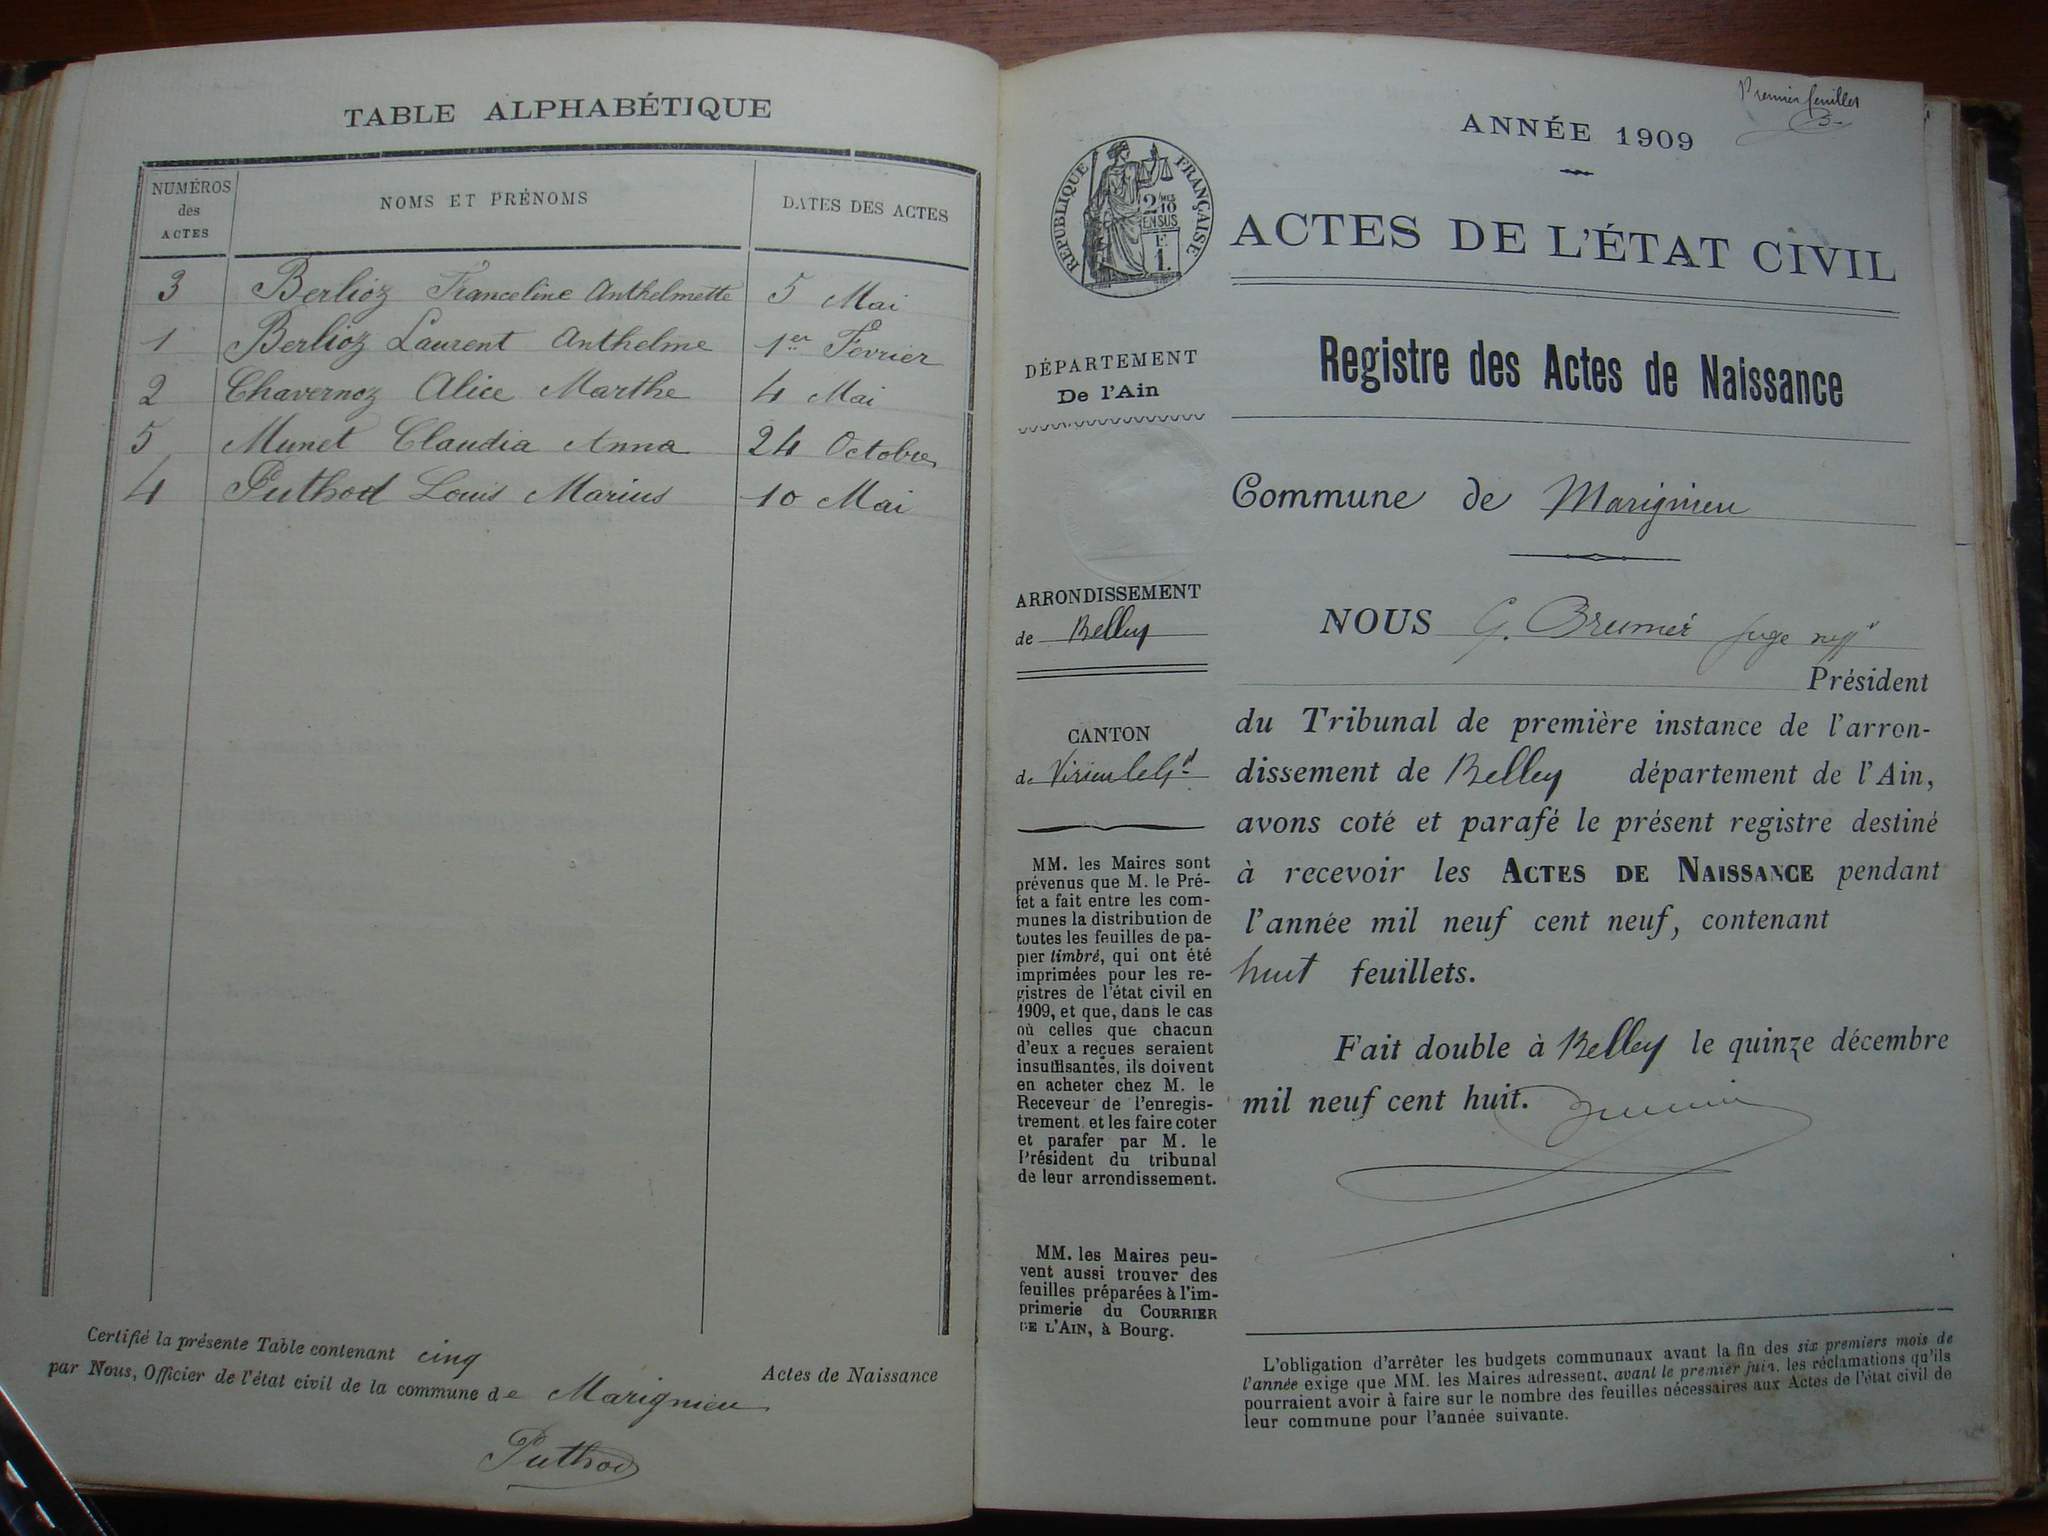 TABLE ALPHABÉTIQUE
NUMÉROS
des
ACTES
NOMS ET PRÉNOMS
DATES DES ACTES
3 Berlioz Franceline Anthelmette 5 Mai
1 Berlioz Laurent Anthelme 1er Fevrier
2 Chavernoz Alice Marthe 4 Mai
5 Munet Claudia Anna 24 Octobre
4 Puthod Louis Marius 10 Mai
Certifié la présente Table contenant cinq
Actes de Naissance
par Nous, Officier de l'état civil de la commune de Marignieu
Puthod
Premier feuillet
ANNÉE 1909
RÉPUBLIQUE FRANÇAISE
2/10
EN SUS
F.
1.
ACTES DE L'ÉTAT CIVIL
Registre des Actes de Naissance
DÉPARTEMENT
De l'Ain
Commune de Marignieu
ARRONDISSEMENT
de Belley
CANTON
de Virieu le Gd
MM. les Maires sont
prévenus que M. le Pré-
fet a fait entre les com-
munes la distribution de
toutes les feuilles de pa-
pier timbré, qui ont été
imprimées pour les re-
gistres de l'état civil en
1909, et que, dans le cas
où celles que chacun
d'eux a reçues seraient
insuffisantes, ils doivent
en acheter chez M. le
Receveur de l'enregis-
trement et les faire coter
et parafer par M. le
Président du tribunal
de leur arrondissement.
MM. les Maires peu-
vent aussi trouver des
feuilles préparées à l'im-
primerie du COURRIER
DE L'AIN, à Bourg.
NOUS G. Brumer juge
Président
du Tribunal de première instance de l'arron-
dissement de Belley département de l'Ain,
avons coté et parafé le présent registre destiné
à recevoir les ACTES DE NAISSANCE pendant
l'année mil neuf cent neuf, contenant
huit feuillets.
Fait double à Belley le quinze décembre
mil neuf cent huit.
L'obligation d'arrêter les budgets communaux avant la fin des six premiers mois de
l'année exige que MM. les Maires adressent, avant le premier juin, les réclamations qu'ils
pourraient avoir à faire sur le nombre des feuilles nécessaires aux Actes de l'état civil de
leur commune pour l'année suivante.